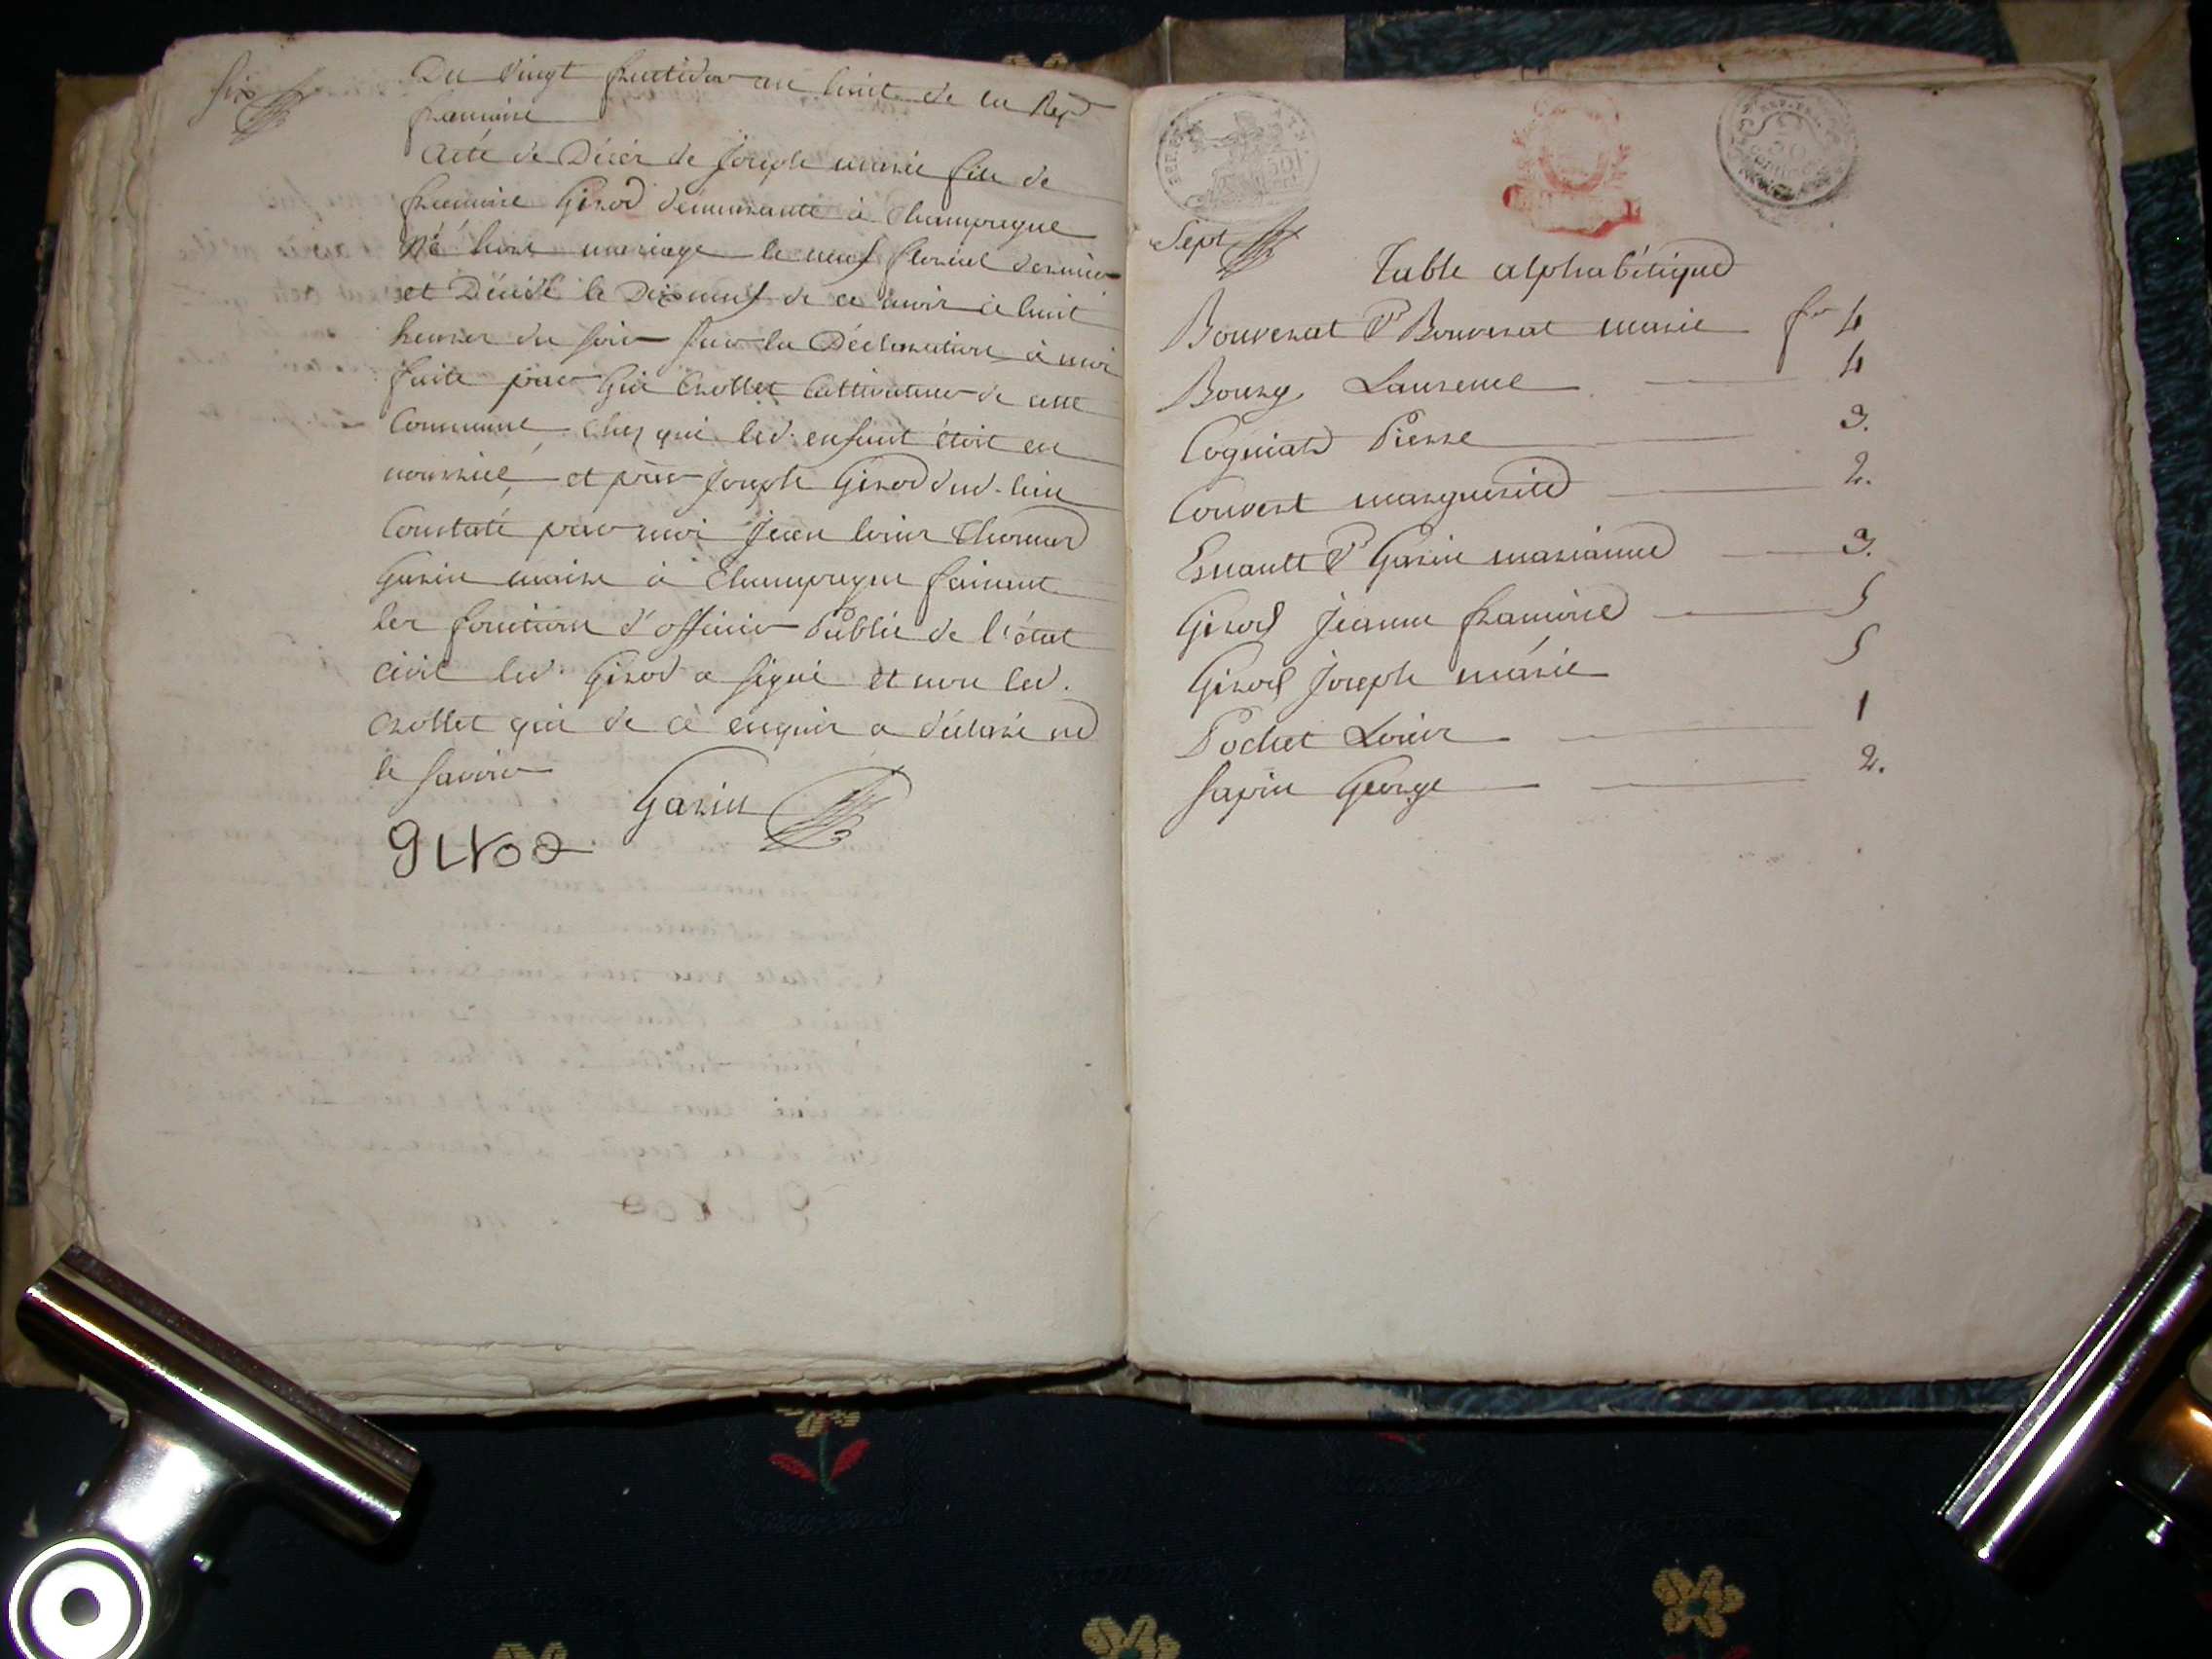 six
Du vingt fructidor an huit de la Rep
francoise
Acte de Décès de Joseph marie fils de
francoise Girod demeurante à Champagne
Né hors mariage le neuf floréal dernier
et Décédé le Dixneuf de ce mois à huit
heures du soir sur la Déclaration à moi
faite par Gui Crollet Cultivateur de cette
Commune chez qui led. enfant étoit en
nourrice, et par Joseph Girod dud. lieu
Constaté par moi Jean louis Thomas
Garin maire à Champagne faisant
les fonctions d'officier Public de l'état
civil led. Girod a signé et non led.
Crollet qui de ce enquis a déclaré ne
le savoir
Garin
girod
Sept
Table alphabétique
Bouverat Bouverat marie fo 4
Bourg Laurence 4
Cogniat Pierre 3.
Couvert marguerite 2.
Garin marianne 3.
Girod Jeanne francoise 5
Girod Joseph marie 5
Pochet Louis 1
Sapin George 2.